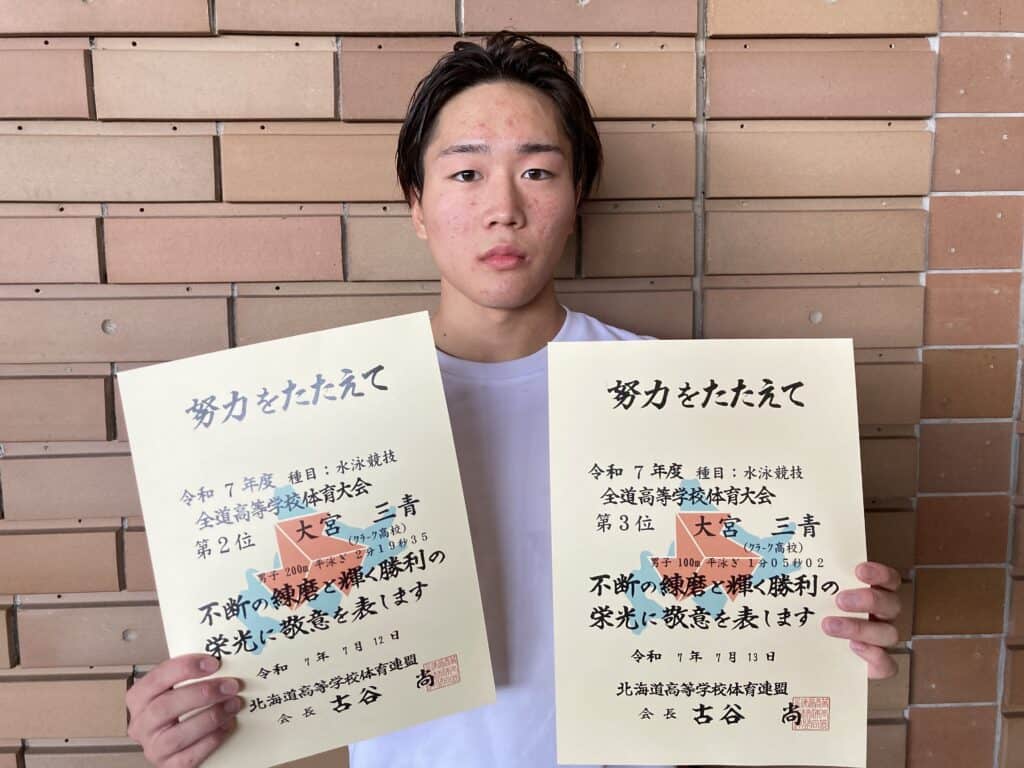 努力をたたえて
令和 7年度 種目:水泳競技
全道高等学校体育大会
第2位 大宮 三青
(クラーク高校)
男子 200m 平泳ぎ 2分19秒35
不断の練磨と輝く勝利の
栄光に敬意を表します
令和 7年 7月12日
北海道高等学校体育連盟
会長 古谷 尚
努力をたたえて
令和 7年度 種目:水泳競技
全道高等学校体育大会
第3位 大宮 三青
(クラーク高校)
男子 100m 平泳ぎ 1分05秒02
不断の練磨と輝く勝利の
栄光に敬意を表します
令和 7年 7月13日
北海道高等学校体育連盟
会長 古谷 尚